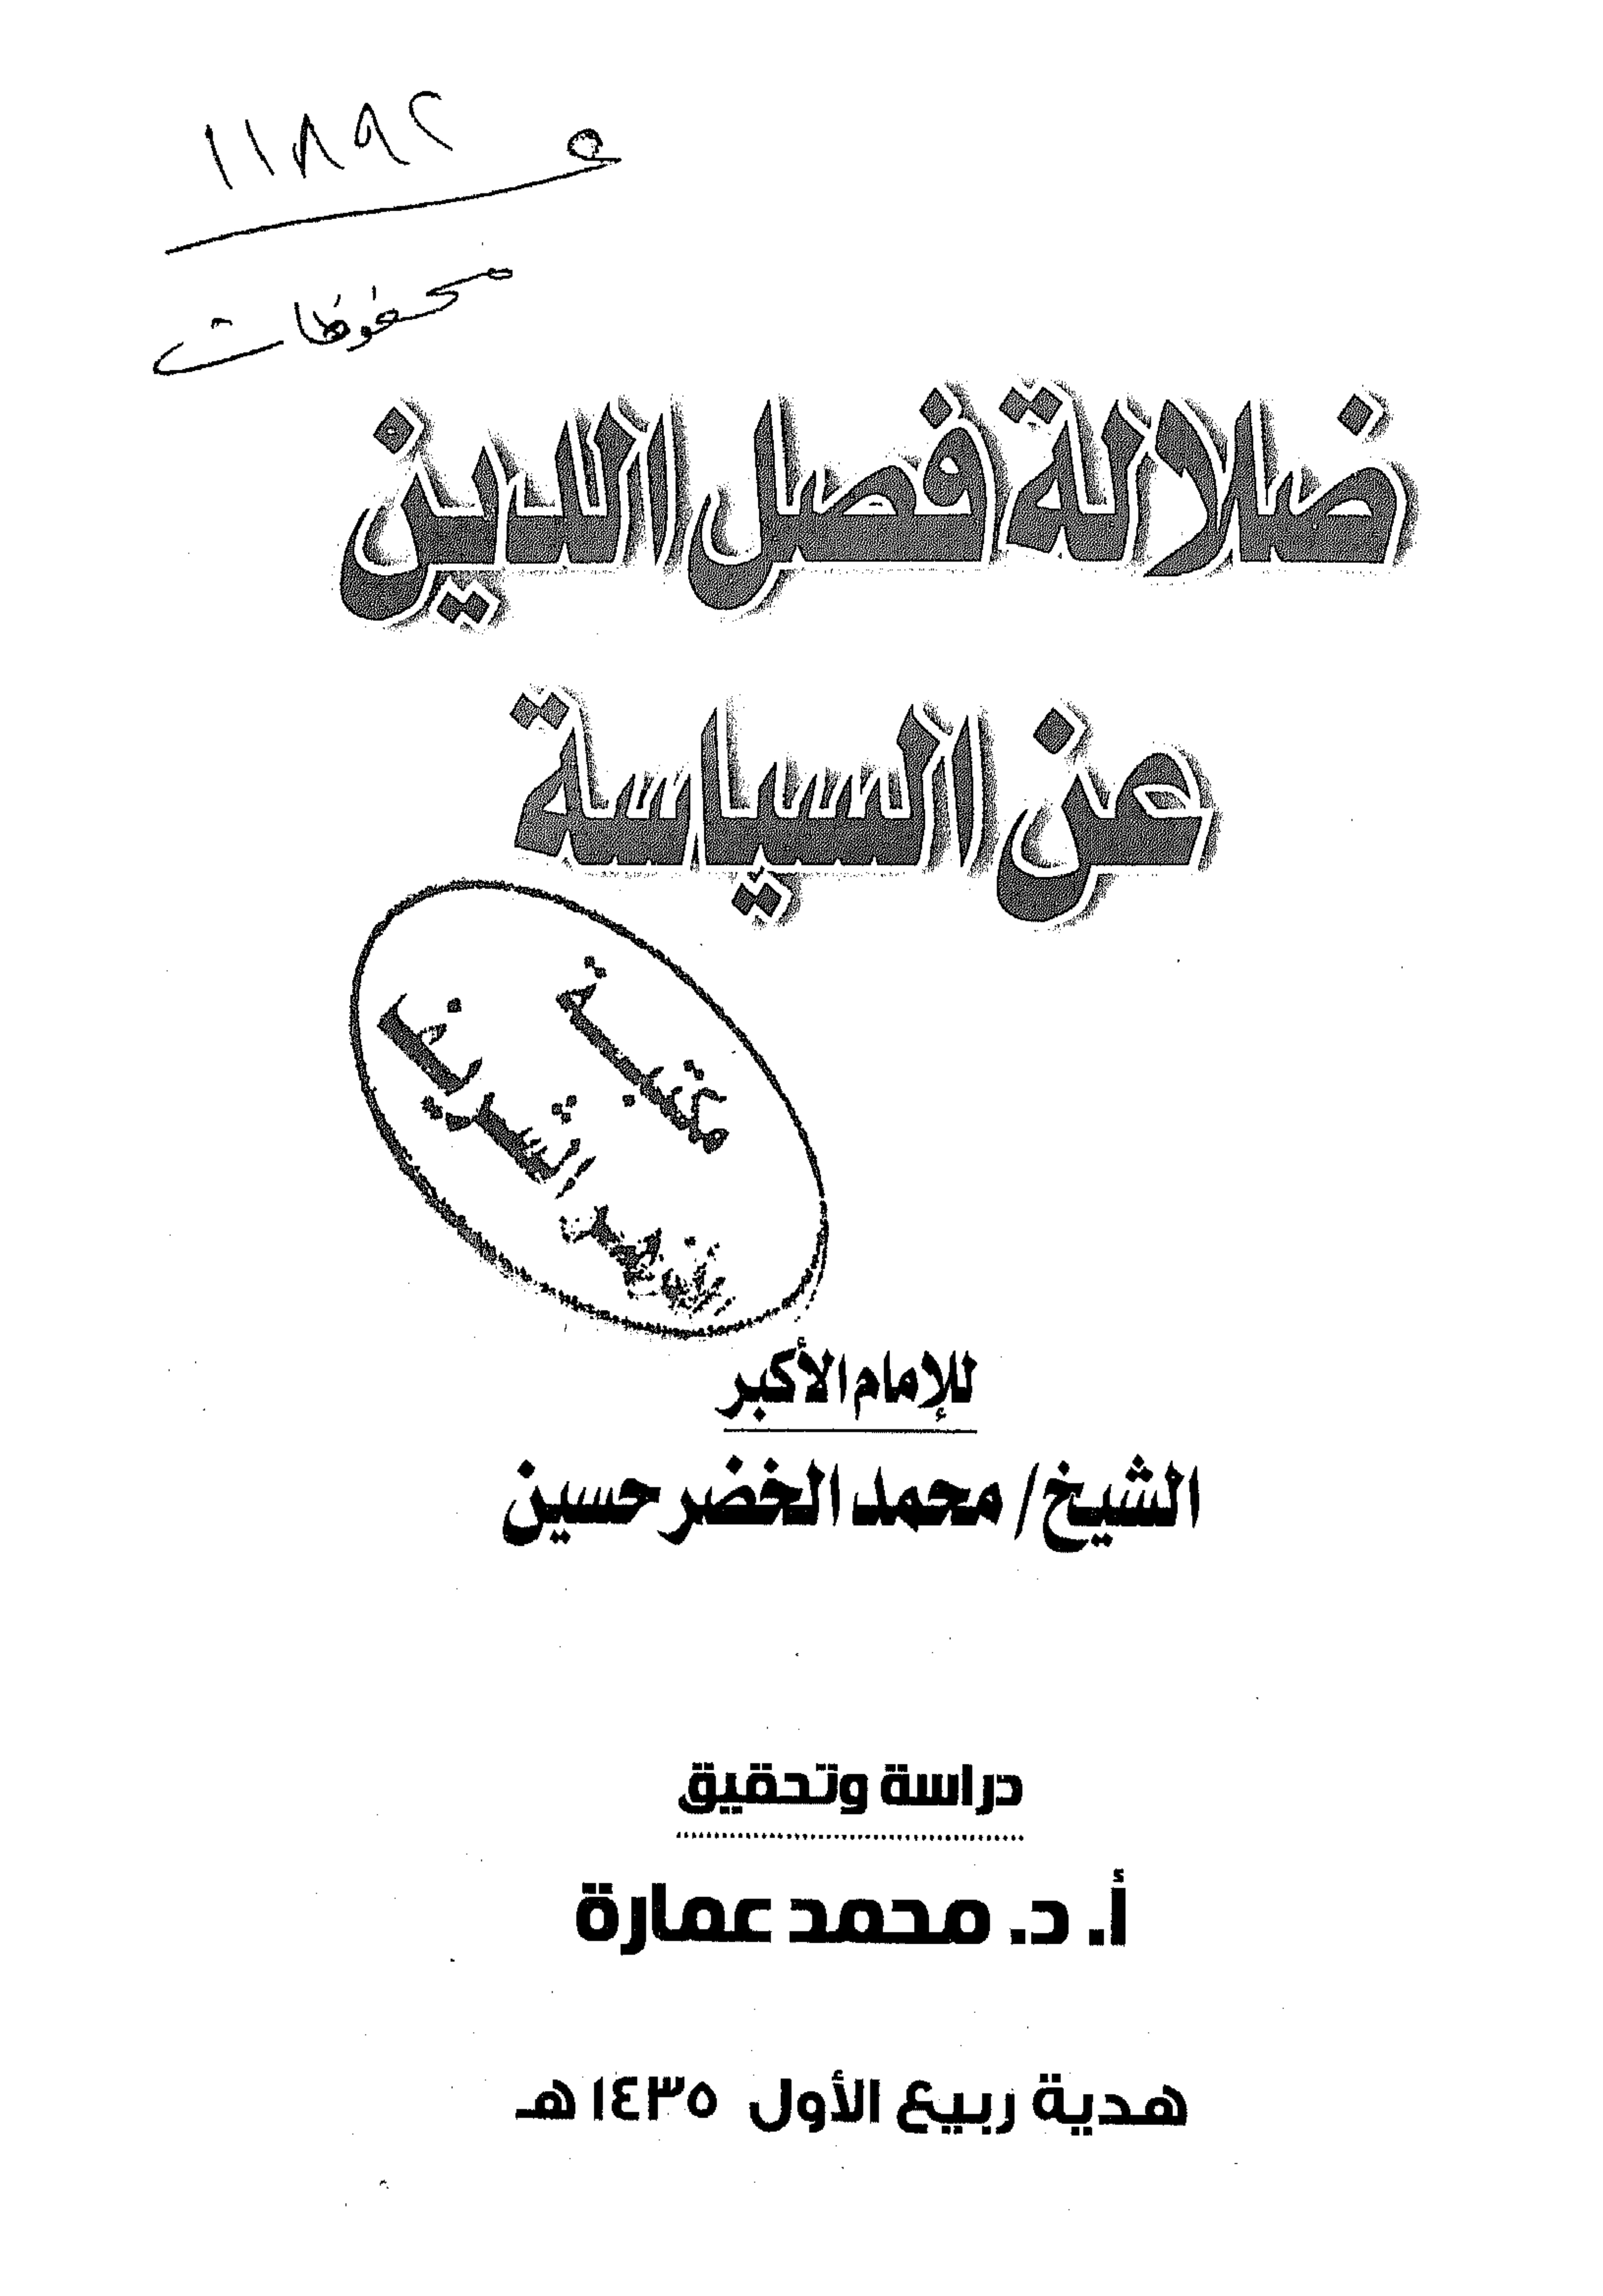 ١١٨٩٢
محفوظات
ضلالة فصل الدين
عن السياسة
مكتبة
الشريف
للإمام الأكبر
الشيخ/ محمد الخضر حسين
دراسة وتحقيق
أ. د. محمد عمارة
هدية ربيع الأول ١٤٣٥هـ